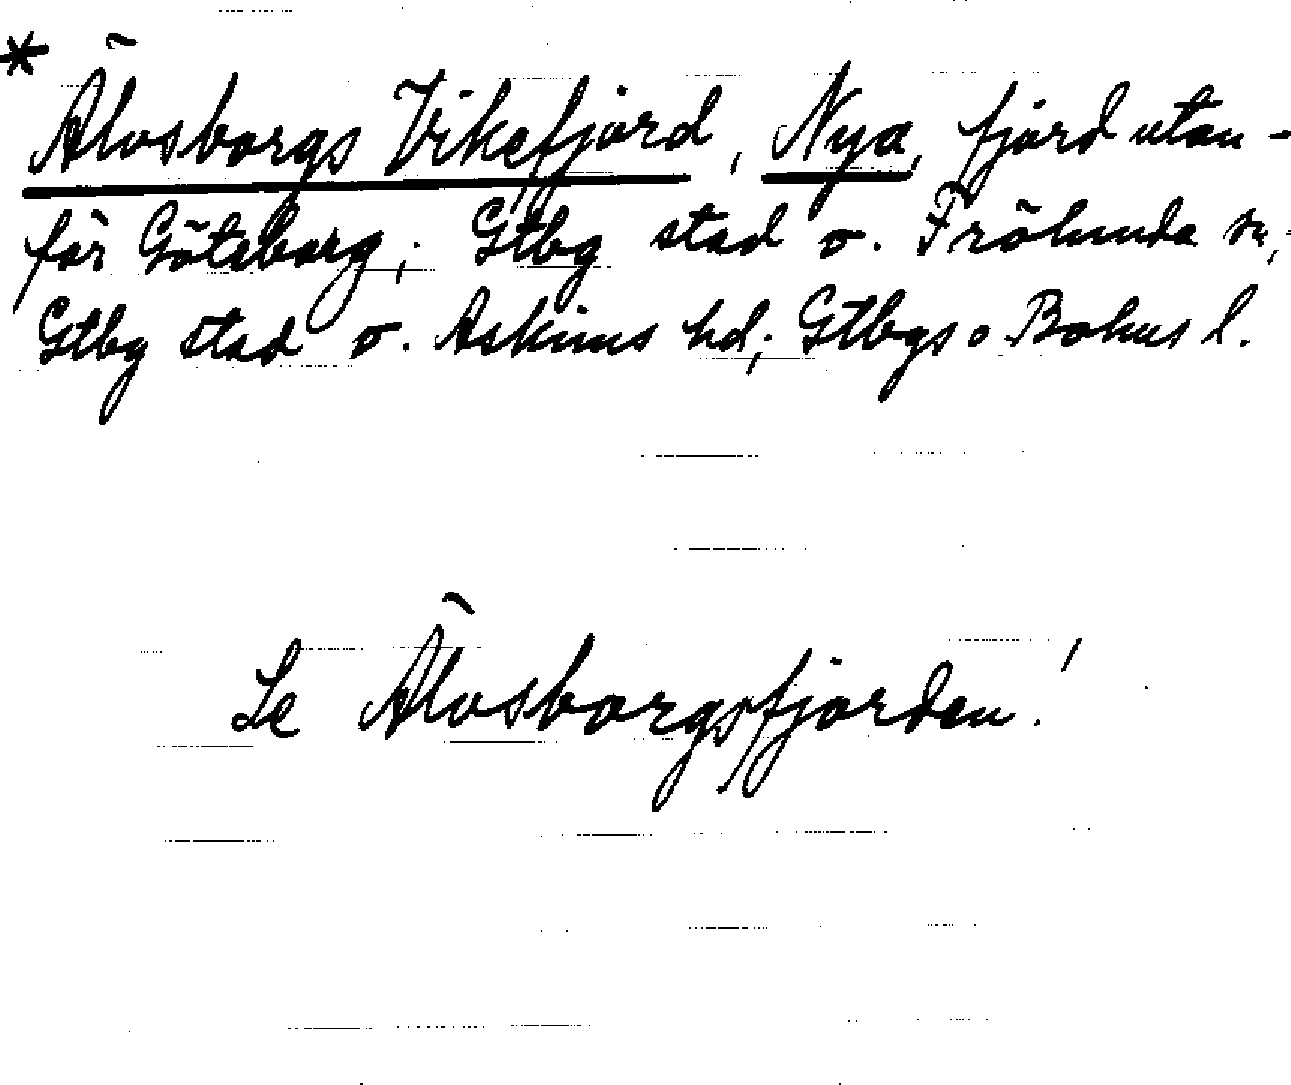 * Älvsborgs Vikefjord, Nya, fjärd utan-
för Göteborg; Gtbg stad o. Frölunda sn,
Gtbg stad o. Askims hd; Gtbgs o Bohus l.
Se Älvsborgsfjorden!